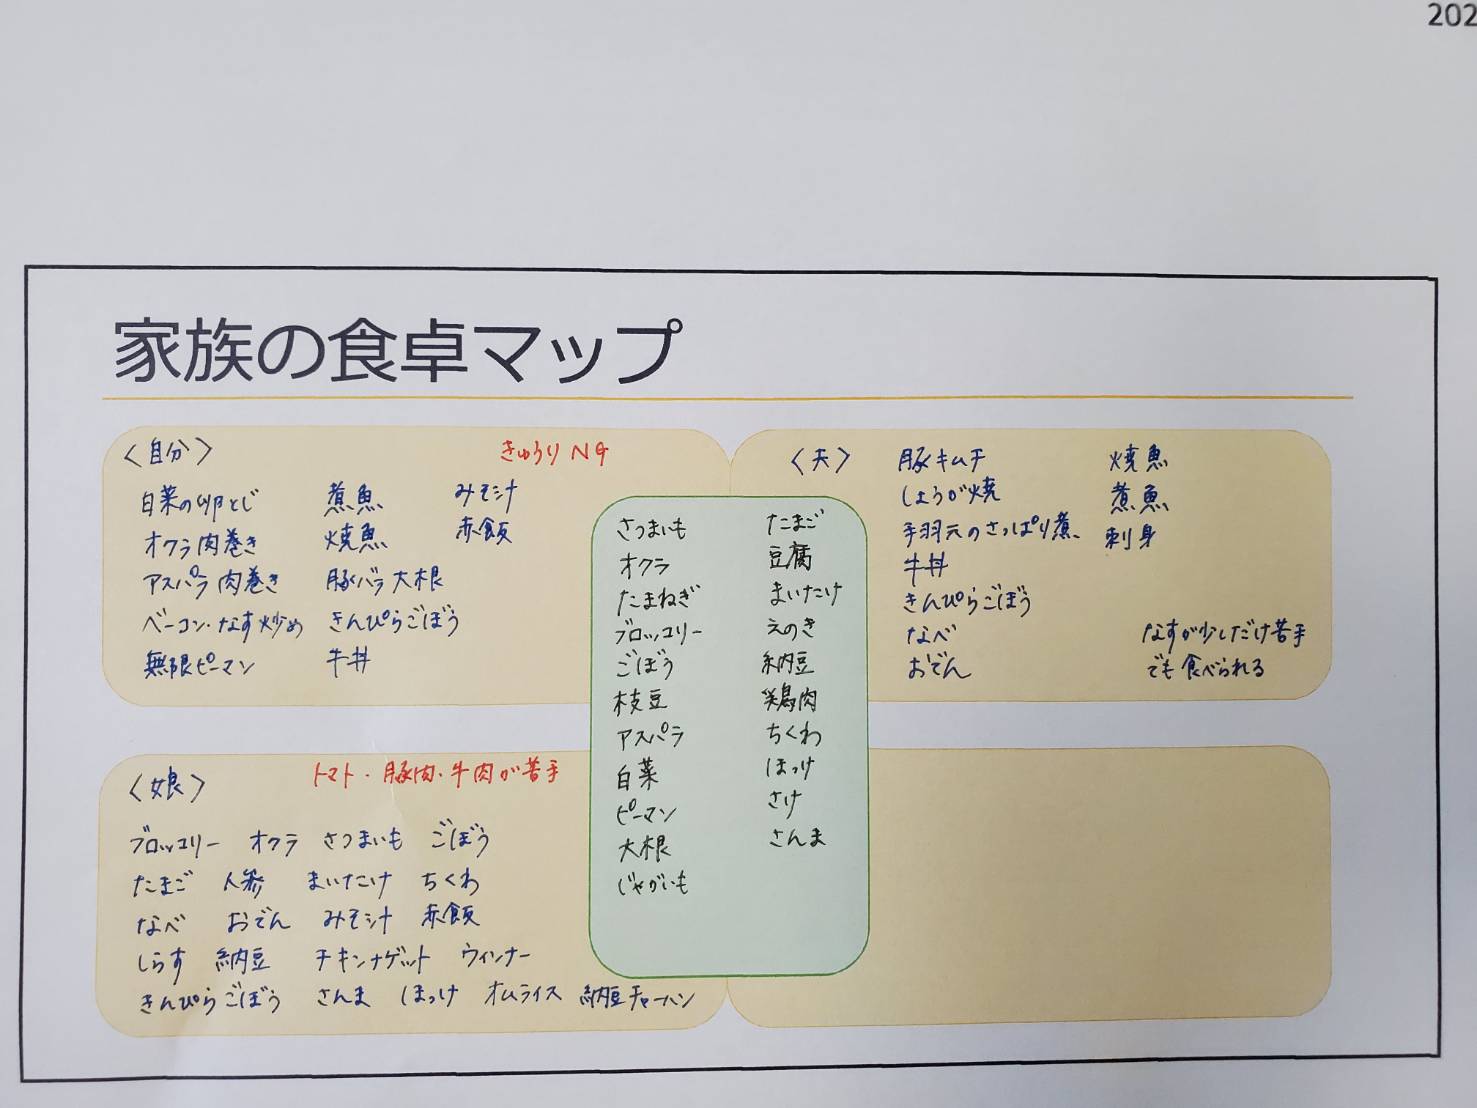 202
家族の食卓マップ
〈自分〉 きゅうりNG
白菜の卵とじ 煮魚 みそ汁
オクラ肉巻き 焼魚 赤飯
アスパラ肉巻き 豚バラ大根
ベーコン・なす炒め きんぴらごぼう
無限ピーマン 牛丼
〈夫〉 豚キムチ 焼魚
しょうが焼 煮魚
手羽元のさっぱり煮 刺身
牛丼
きんぴらごぼう
なべ なすが少しだけ苦手
おでん でも食べられる
さつまいも たまご
オクラ 豆腐
たまねぎ まいたけ
ブロッコリー えのき
ごぼう 納豆
枝豆 鶏肉
アスパラ ちくわ
白菜 ほっけ
ピーマン さけ
大根 さんま
じゃがいも
〈娘〉 トマト・豚肉・牛肉が苦手
ブロッコリー オクラ さつまいも ごぼう
たまご 人参 まいたけ ちくわ
なべ おでん みそ汁 赤飯
しらす 納豆 チキンナゲット ウィンナー
きんぴらごぼう さんま ほっけ オムライス 納豆チャーハン